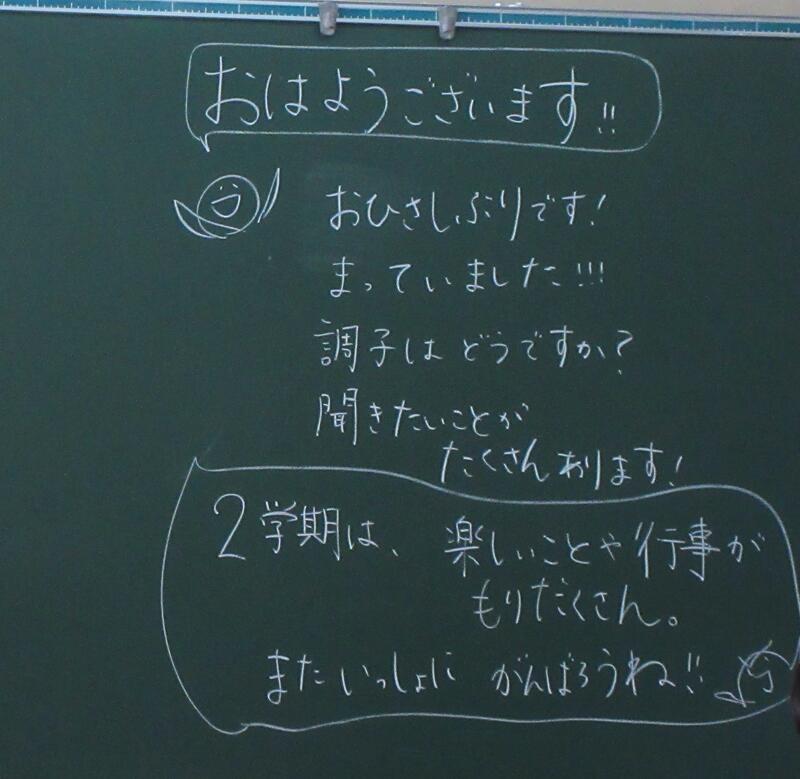 おはようございます!!
おひさしぶりです!
まっていました!!!
調子はどうですか?
聞きたいことが
たくさんあります!
2学期は、楽しいことや行事が
もりだくさん。
またいっしょに がんばろうね!!